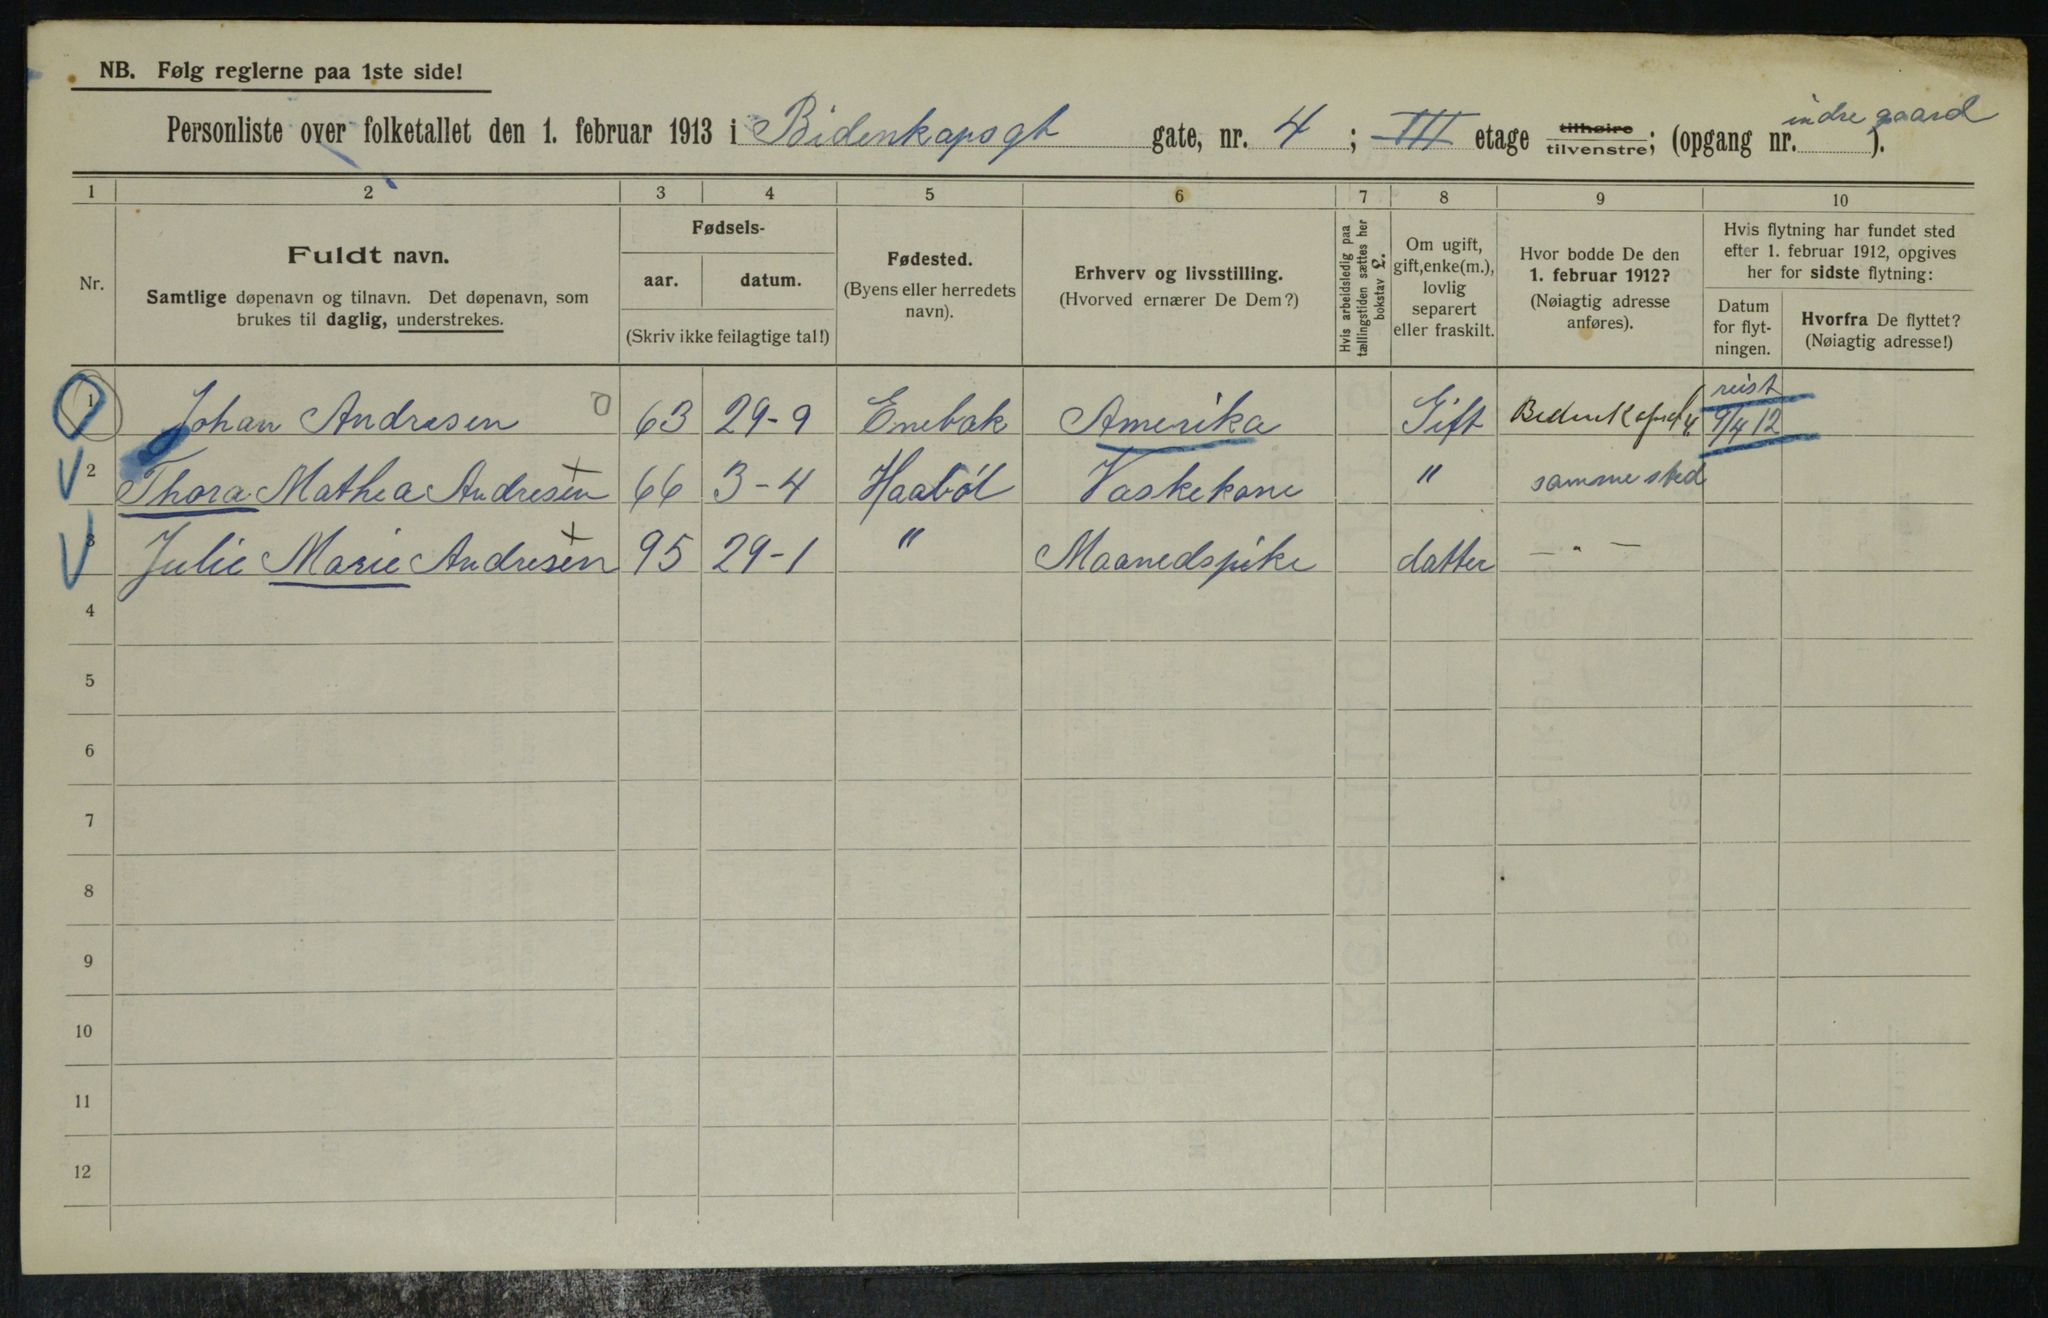 NB. Følg reglerne paa 1ste side!
Personliste over folketallet den 1. februar 1913 i Bidenkapsgt gate, nr. 4 ; III etage tilhøire tilvenstre; (opgang nr. indre gaard ).
1 2 3 4 5 6 7 8 9 10
Nr.
Fuldt navn.
Samtlige døpenavn og tilnavn. Det døpenavn, som
brukes til daglig, understrekes.
Fødsels-
aar. datum.
(Skriv ikke feilagtige tal!)
Fødested.
(Byens eller herredets
navn).
Erhverv og livsstilling.
(Hvorved ernærer De Dem?)
Hvis arbeidsledig paa
tællingstiden sættes her
bokstav L.
Om ugift,
gift, enke(m.),
lovlig
separert
eller fraskilt.
Hvor bodde De den
1. februar 1912?
(Nøiagtig adresse
anføres).
Hvis flytning har fundet sted
efter 1. februar 1912, opgives
her for sidste flytning:
Datum
for flyt-
ningen.
Hvorfra De flyttet?
(Nøiagtig adresse!)
1 Johan Andresen 63 29-9 Enebak Amerika Gift reist 9/4 12
2 Thora Mathea Andresen 66 3-4 Haabøl Vaskekone " samme sted
3 Julie Marie Andresen 95 29-1 " Maanedspike datter — " —
4
5
6
7
8
9
10
11
12